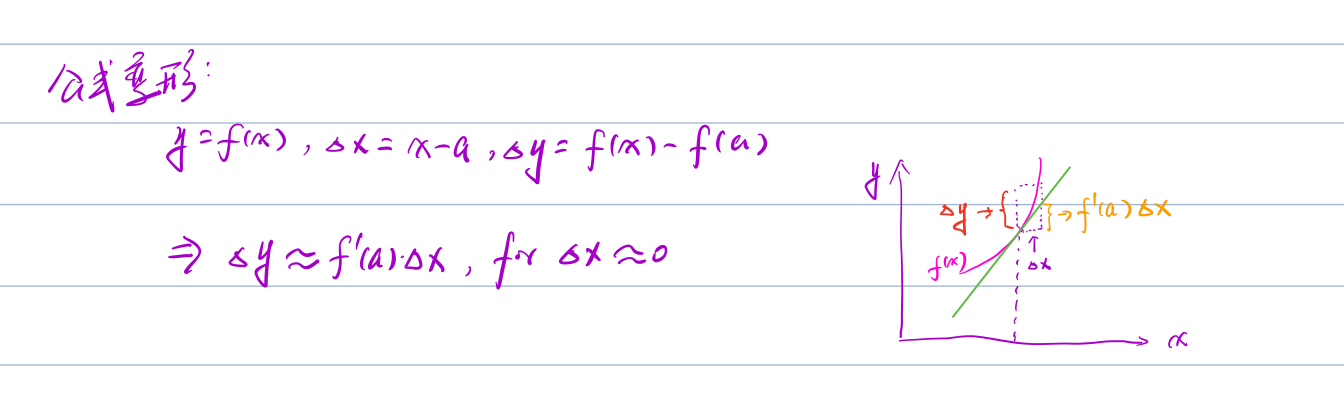 公式变形:
y=f(x), Δx=x-a, Δy=f(x)-f(a)
⇒ Δy≈f'(a)·Δx, for Δx≈0
y
Δy→{ }→f'(a)Δx
f(x)
↑
Δx
x